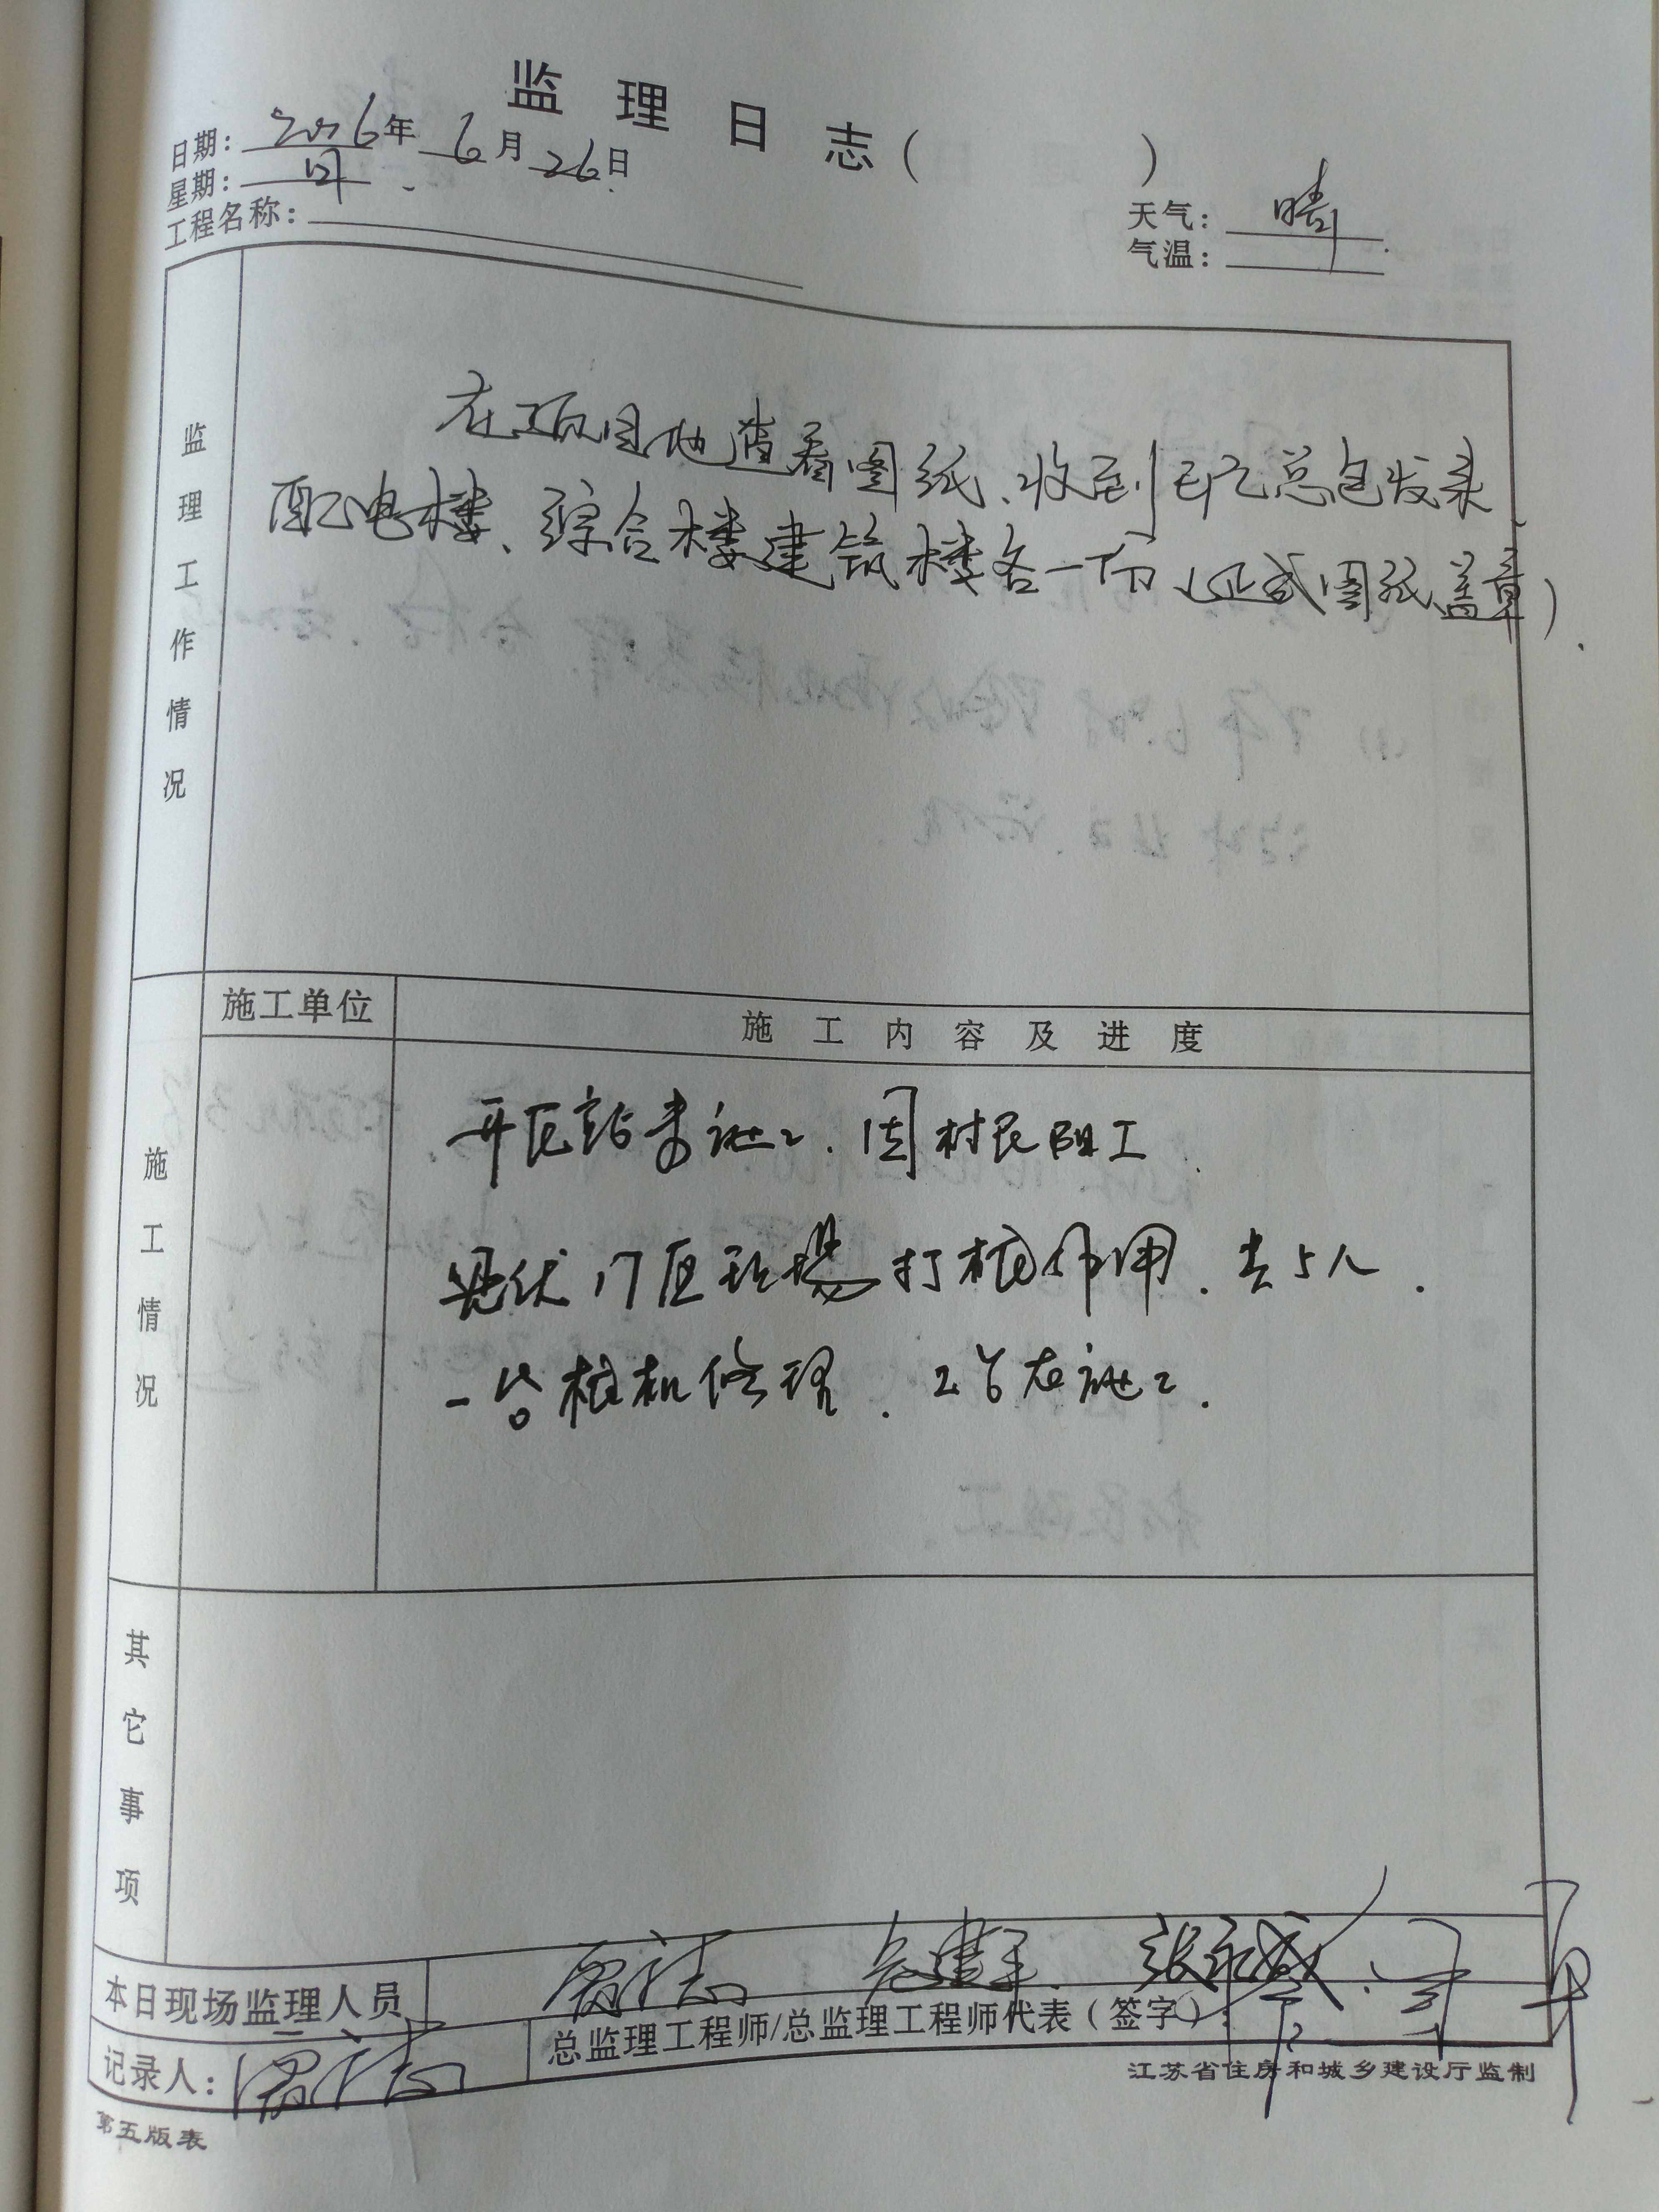 监理日志（ ）
日期：2016年6月26日
星期：日
工程名称：
天气：晴
气温：
监理工作情况
在项目地查看图纸、收到 总包发来
配电楼、综合楼建筑楼各一份（正式图纸盖章）.
施工单位
施工内容及进度
施工情况
开压站未施工.因村民阻工.
打桩 共5人.
一台桩机修理.2台在施工.
其它事项
本日现场监理人员
记录人：
总监理工程师/总监理工程师代表（签字）：
江苏省住房和城乡建设厅监制
第五版表